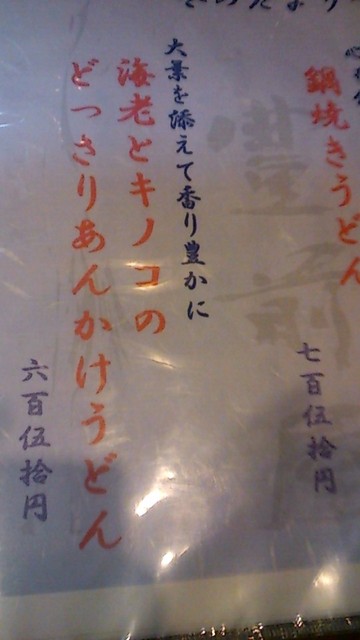 鍋焼きうどん
七百伍拾円
大景を添えて香り豊かに
海老とキノコの
どっさりあんかけうどん
六百伍拾円